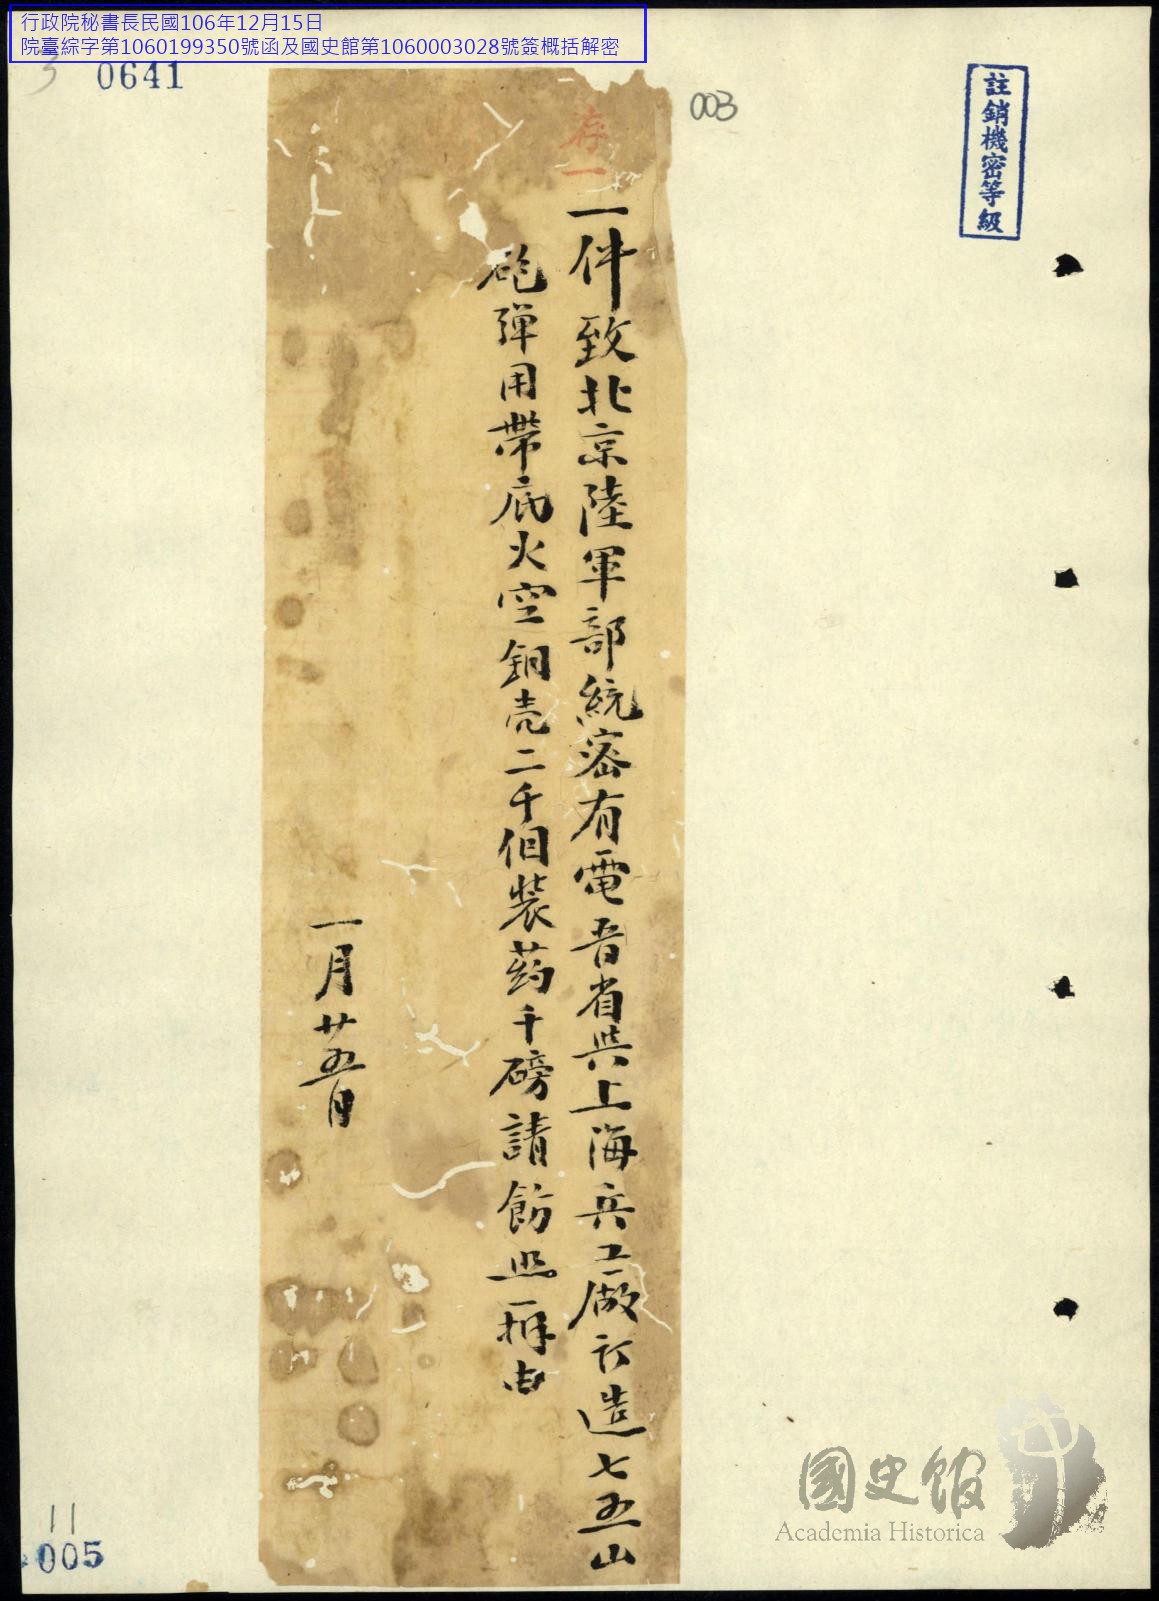 行政院秘書長民國106年12月15日
院臺綜字第1060199350號函及國史館第1060003028號簽概括解密
3
0641
003
註銷機密等級
存
一
一件致北京陸軍部統密有電晋省與上海兵工廠訂造七五山
砲弹用帶底火空銅壳二千個装药千磅請飭照辦由
一月廿五日
國史館
Academia Historica
11
005